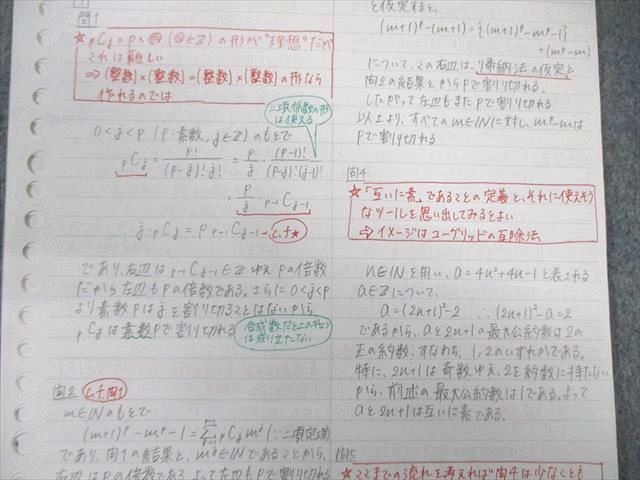 問1
★ pCj = p×●(●∈Z)の形が"理想"だが
これは難しい
⇒(整数)×(整数)=(整数)×(整数)の形なら
作れるのでは
二項係数の形
は使える
0<j<p (p:素数, j∈Z)のもとで
pCj = p!/((p-j)! j!) = p/j・(p-1)!/((p-j)!(j-1)!)
= p/j・p-1Cj-1
∴ j・pCj = p・p-1Cj-1 ← c.f.★
であり、右辺は p-1Cj-1∈Z ゆえ pの倍数
だから左辺もpの倍数である。さらに 0<j<p
より素数pはjを割り切ることはないから
pCjは素数pで割り切れる
合成数だと上の
は成り立たない
問2 c.f.問1
m∈INのもとで
(m+1)^p-m^p-1=Σ pCj m^j (∵二項定理)
であり、問1の結果と、m^j∈INであることから、
右辺はpの倍数である。よって左辺もpで割り
を仮定すると、
(m+1)^p-(m+1)={(m+1)^p-m^p-1}
+(m^p-m)
について、この右辺は、帰納法の仮定と
問2の結果とからpで割り切れる。
したがって左辺もまたpで割り切れる。
以上より、すべてのm∈INに対し、m^p-mは
pで割り切れる
問4
★「互いに素」であることの定義と、それに使えそう
なツールを思い出してみるとよい
⇒イメージはユークリッドの互除法
n∈INを用い、a=4n²+4n-1と表される
a∈Zについて、
a=(2n+1)²-2 ∴(2n+1)²-a=2
であるから、aと2n+1の最大公約数は2の
正の約数、すなわち、1,2のいずれかである。
特に、2n+1は奇数ゆえ、2を約数に持たない
から、前述の最大公約数は1である。よって
aと2n+1は互いに素である。
問5
★ここまでの流れを考えれば問4は少なくとも